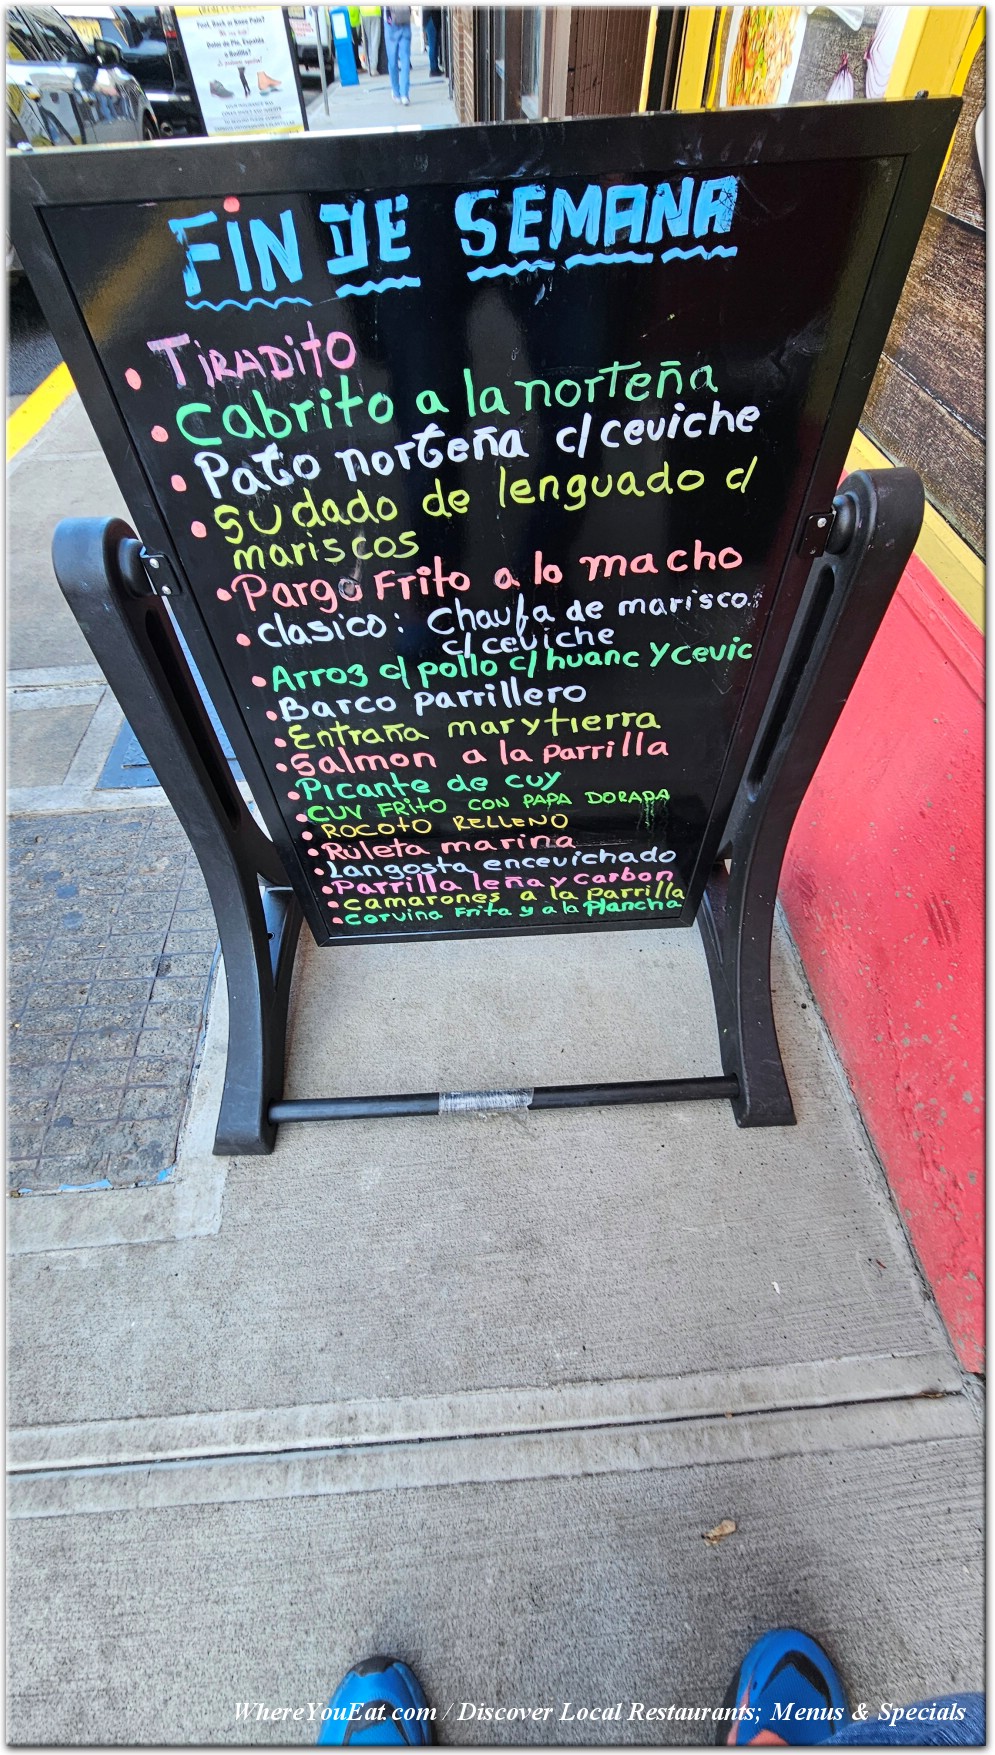 Foot, Back or Knee Pain?
Dolor de Pie, Espalda
y Rodilla?
FIN DE SEMANA
• TiRADitO
• Cabrito a la norteña
• Pato norteña c/ceviche
• Sudado de lenguado c/
mariscos
• Pargo Frito a lo macho
• clasico: Chaufa de marisco
c/ceviche
• Arroz c/ pollo c/ huanc y cevic
• Barco parrillero
• Entraña mar y tierra
• Salmon a la parrilla
• Picante de cuy
• CUY FRitO CON PAPA DORADA
• ROCOTO RELLENO
• Ruleta marina
• Langosta encevichado
• Parrilla leña y Carbon
• camarones a la parrilla
• corvina Frita y a la Plancha
WhereYouEat.com / Discover Local Restaurants; Menus & Specials